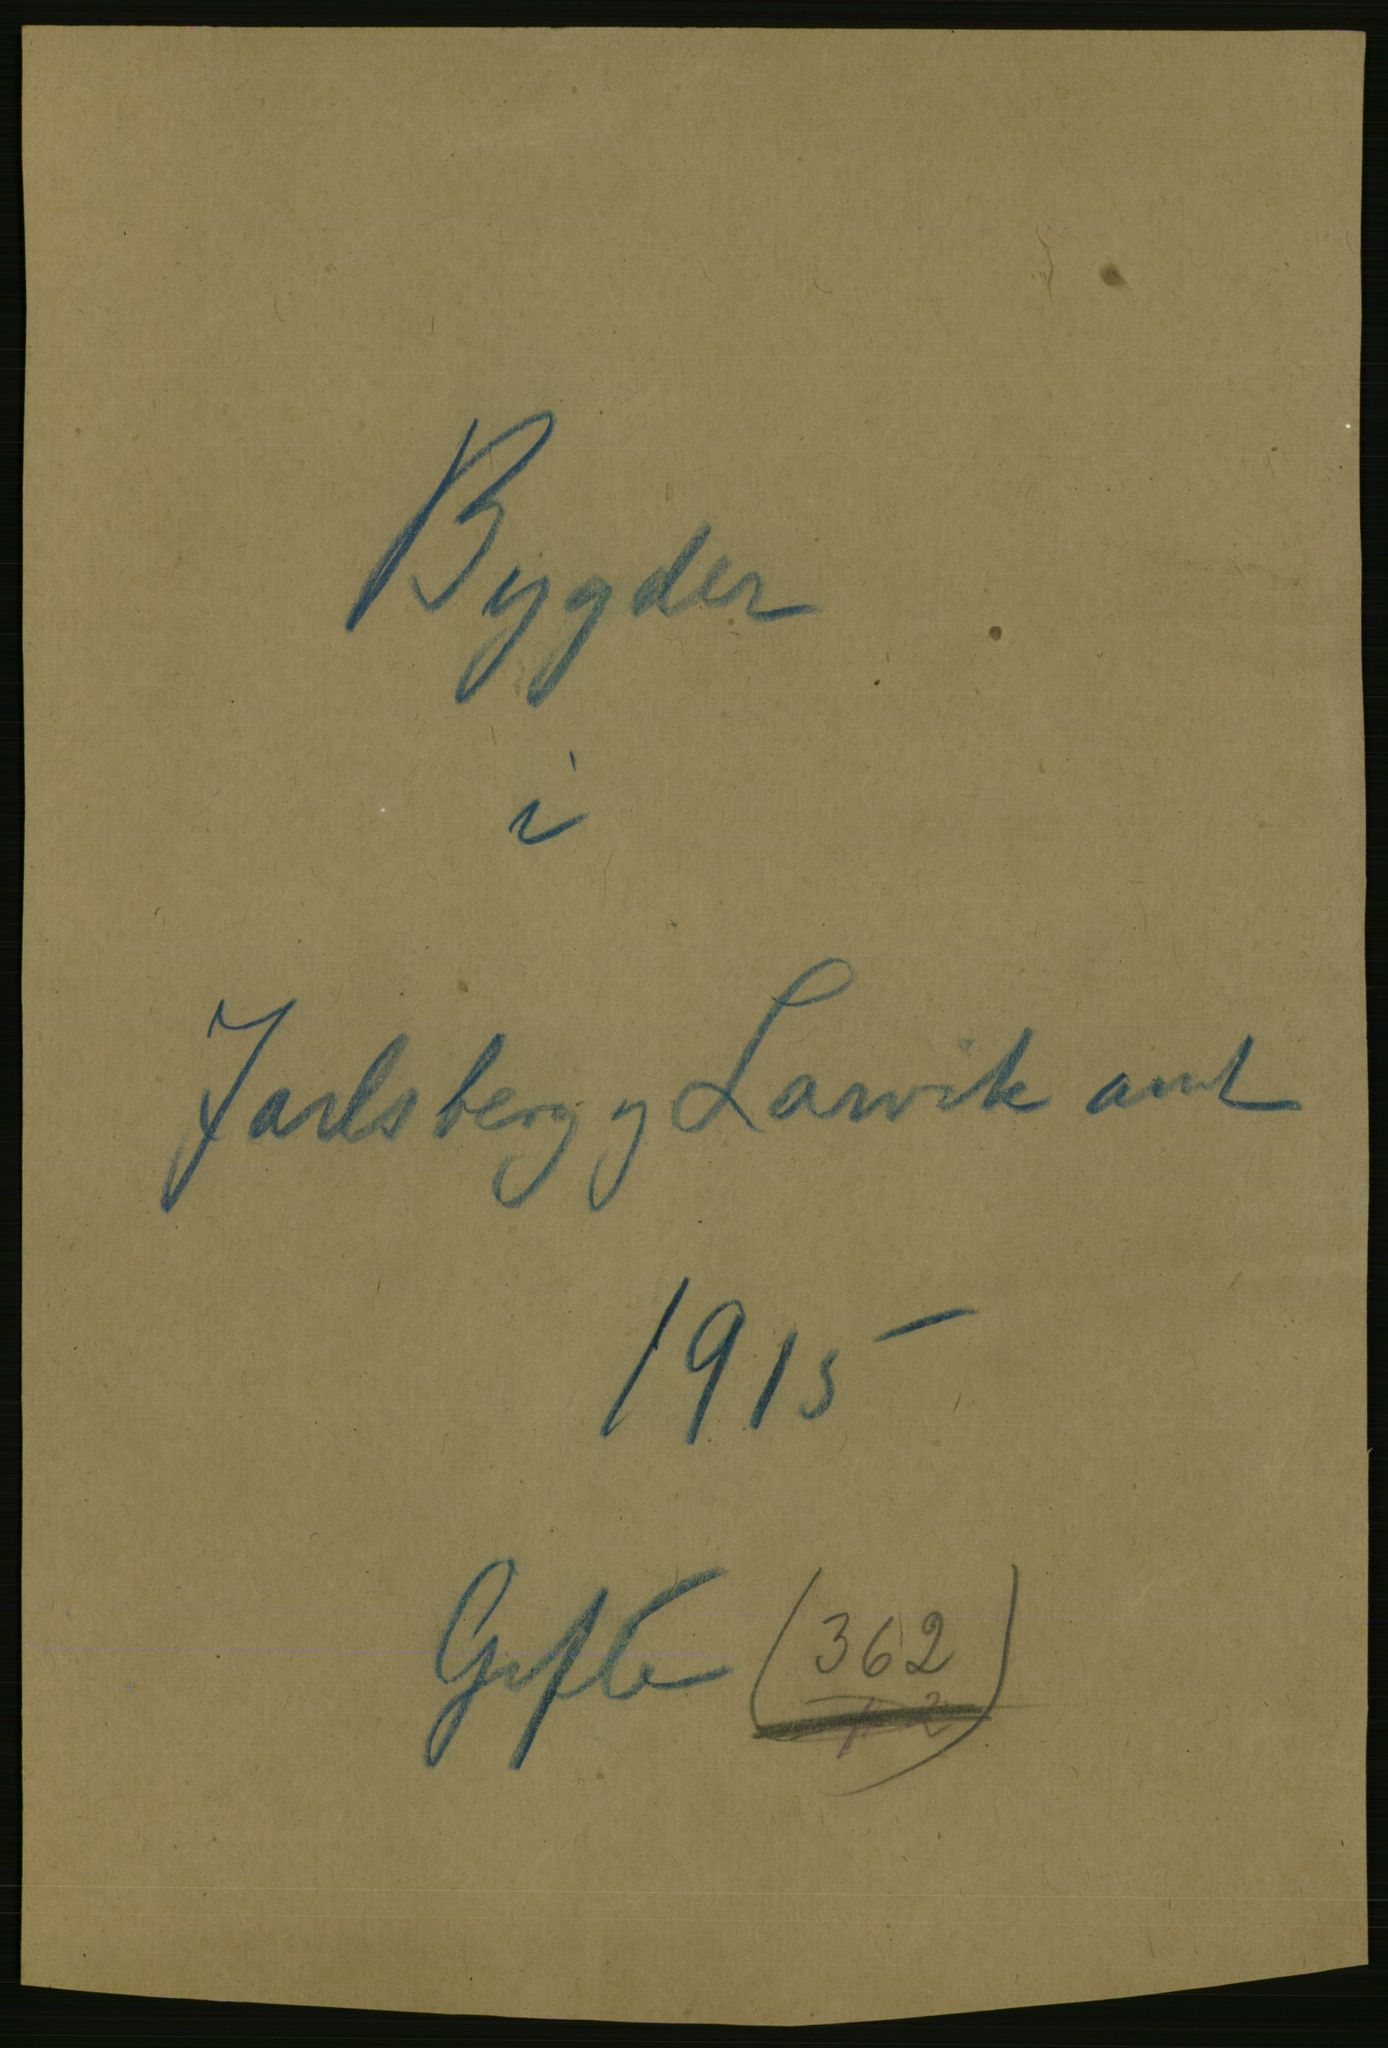 Bygder
i
Jarlsberg og Larvik amt
1915
Gifte (362)